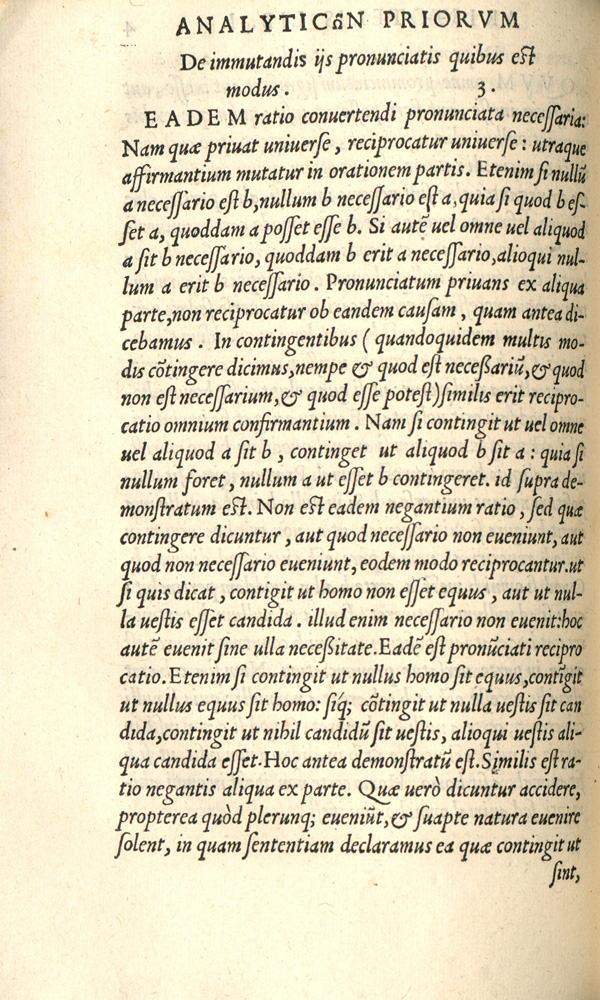 ANALYTICωN PRIORVM
De immutandis ijs pronunciatis quibus est
modus. 3.
EADEM ratio conuertendi pronunciata necessaria:
Nam quæ priuat uniuerse, reciprocatur uniuerse: utraque
affirmantium mutatur in orationem partis. Etenim si nullũ
a necessario est b, nullum b necessario est a, quia si quod b es-
set a, quoddam a posset esse b. Si autẽ uel omne uel aliquod
a sit b necessario, quoddam b erit a necessario, alioqui nul-
lum a erit b necessario. Pronunciatum priuans ex aliqua
parte, non reciprocatur ob eandem causam, quam antea di-
cebamus. In contingentibus ( quandoquidem multis mo-
dis cõtingere dicimus, nempe & quod est necessariũ, & quod
non est necessarium, & quod esse potest) similis erit recipro-
catio omnium confirmantium. Nam si contingit ut uel omne
uel aliquod a sit b, continget ut aliquod b sit a: quia si
nullum foret, nullum a ut esset b contingeret. id supra de-
monstratum est. Non est eadem negantium ratio, sed quæ
contingere dicuntur, aut quod necessario non eueniunt, aut
quod non necessario eueniunt, eodem modo reciprocantur. ut
si quis dicat, contigit ut homo non esset equus, aut ut nul-
la uestis esset candida. illud enim necessario non euenit: hoc
autẽ euenit sine ulla necessitate. Eadẽ est pronũciati recipro
catio. Etenim si contingit ut nullus homo sit equus, contĩgit
ut nullus equus sit homo: siq́; cõtingit ut nulla uestis sit can
dida, contingit ut nihil candidũ sit uestis, alioqui uestis ali-
qua candida esset. Hoc antea demonstratũ est. Similis est ra-
tio negantis aliqua ex parte. Quæ uerò dicuntur accidere,
propterea quòd plerunq; eueniũt, & suapte natura euenire
solent, in quam sententiam declaramus ea quæ contingit ut
sint,